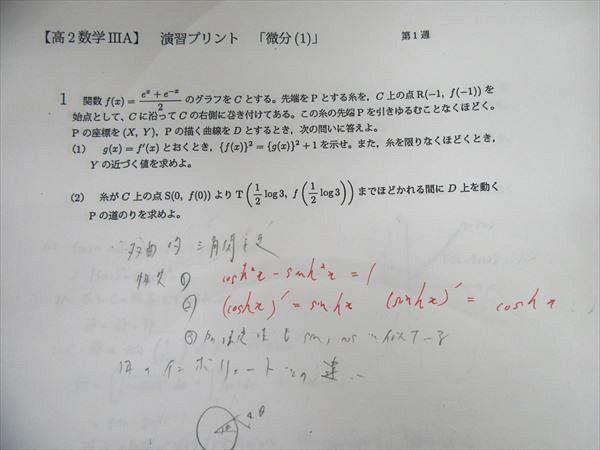 【高2数学ⅢA】 演習プリント 「微分(1)」 第1週
1 関数 f(x) = (e^x + e^{-x})/2 のグラフを C とする。先端を P とする糸を, C 上の点 R(−1, f(−1)) を
始点として, C に沿って C の右側に巻き付けてある。この糸の先端 P を引きゆるむことなくほどく。
P の座標を (X, Y), P の描く曲線を D とするとき, 次の問いに答えよ。
(1) g(x) = f′(x) とおくとき, {f(x)}² = {g(x)}² + 1 を示せ。また, 糸を限りなくほどくとき,
Y の近づく値を求めよ。
(2) 糸が C 上の点 S(0, f(0)) より T(1/2 log3, f(1/2 log3)) までほどかれる間に D 上を動く
P の道のりを求めよ。
双曲的三角関数
性質 ① cosh²x − sinh²x = 1
② (coshx)′ = sinhx (sinhx)′ = coshx
③ 加法定理も sin, cos に
円のインボリュートとの違い